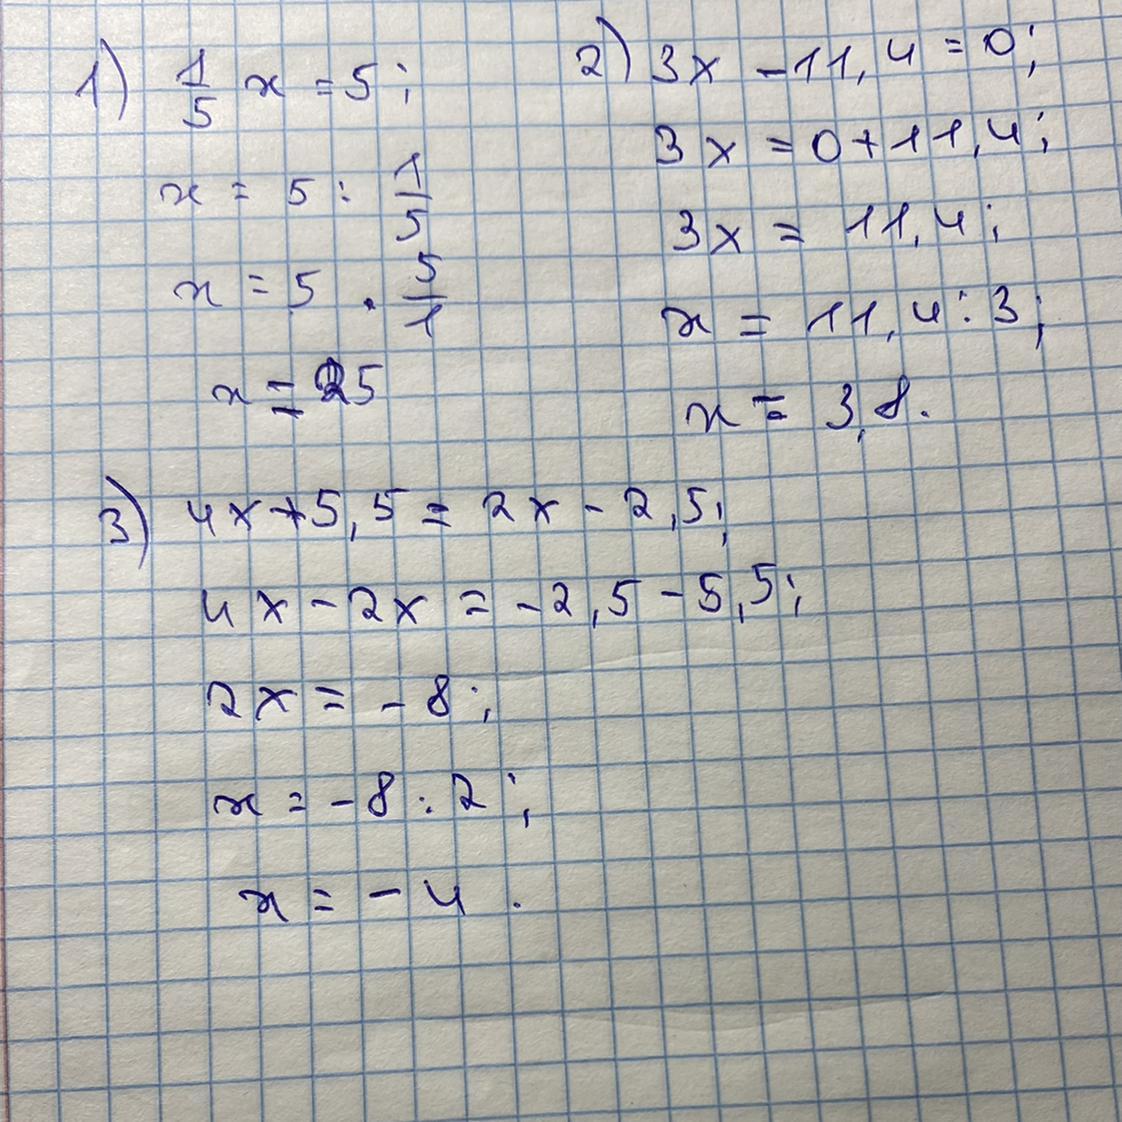 1) 1/5 x = 5;
x = 5 : 1/5
x = 5 · 5/1
x = 25
2) 3x - 11,4 = 0;
3x = 0 + 11,4;
3x = 11,4;
x = 11,4 : 3;
x = 3,8.
3) 4x + 5,5 = 2x - 2,5;
4x - 2x = -2,5 - 5,5;
2x = -8;
x = -8 : 2;
x = -4.